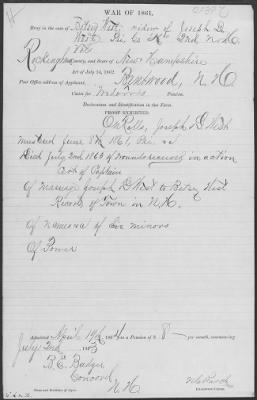 WAR OF 1861.
Brief in the case of Betsey West, widow of Joseph D.
West Co. K 2nd N.H.
Vols
Rockingham County, and State of New Hampshire
Act of July 14, 1862.
Post Office address of Applicant, N. H.
Claim for
Declaration and Identification in due Form.
PROOF EXHIBITED.
On Rolls, Joseph D West
mustered June 8th 1861,
Died July 2nd 1863 of wounds received in action
Cert of Captain
Of Marriage Joseph D West to Betsey West
Record of Town in N.H.
Of names of minors
Admitted April 19th 1864 to a Pension of $ 8 per month, commencing
July 2nd 1863
B. E. Badger
Concord
N. H.
Name and Residence of Agent.